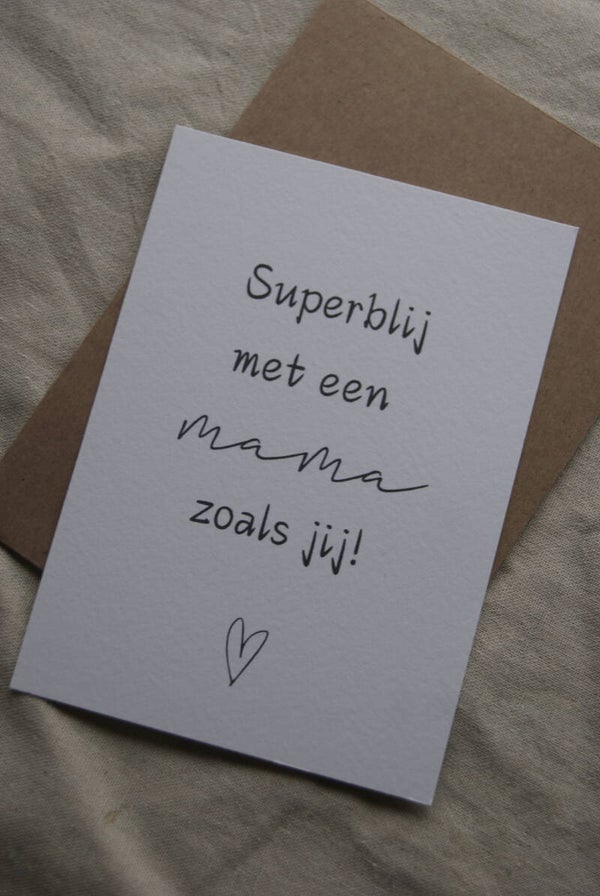 Superblij
met een
mama
zoals jij!